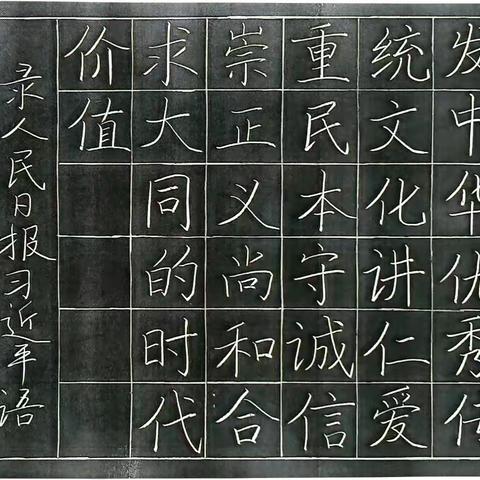 发中华优秀传
统文化讲仁爱
重民本守诚信
崇正义尚和合
求大同的时代
价值
录人民日报习近平语